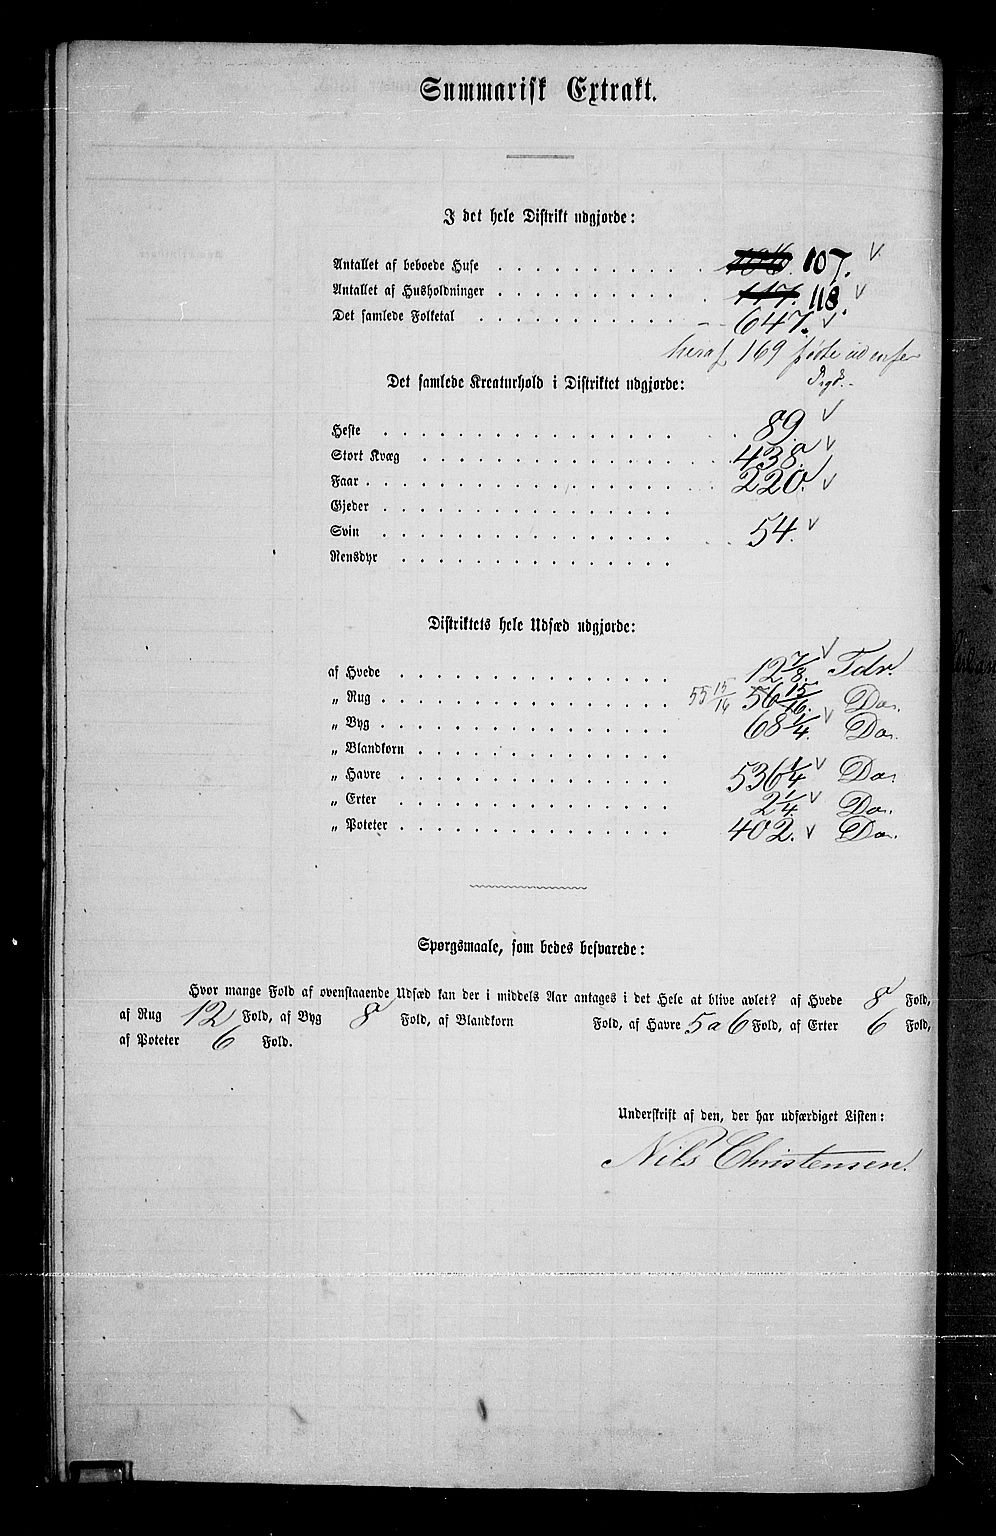 Summarisk Extrakt.
I det hele Distrikt udgjorde:
Antallet af beboede Huse . . . . . . . . . . . . 107.
Antallet af Husholdninger . . . . . . . . . . . . 117. 118.
Det samlede Folketal . . . . . . . . . . . . 647.
heraf 169 fødte udenfor
Prgd.
Det samlede Kreaturhold i Distriktet udgjorde:
Heste . . . . . . . . . . . . 89.
Stort Kvæg . . . . . . . . . . . . 438.
Faar . . . . . . . . . . . . 220.
Gjeder . . . . . . . . . . . .
Svin . . . . . . . . . . . . 54.
Rensdyr . . . . . . . . . . . .
Distriktets hele Udsæd udgjorde:
af Hvede . . . . . . . . . . . . 12 7/8. Tdr.
„ Rug . . . . . . . . . . . . 55 15/16 56 15/16. Do.
„ Byg . . . . . . . . . . . . 68 1/4. Do.
„ Blandkorn . . . . . . . . . . . .
„ Havre . . . . . . . . . . . . 536 1/4 Do.
„ Erter . . . . . . . . . . . . 2 1/4. Do.
„ Poteter . . . . . . . . . . . . 402. Do.
Spørgsmaale, som bedes besvarede:
Hvor mange Fold af ovenstaaende Udsæd kan der i middels Aar antages i det Hele at blive avlet? af Hvede 8 Fold,
af Rug 12 Fold, af Byg 8 Fold, af Blandkorn Fold, af Havre 5 a 6 Fold, af Erter 6 Fold,
af Poteter 6 Fold.
Underskrift af den, der har udfærdiget Listen:
Nils Christensen.